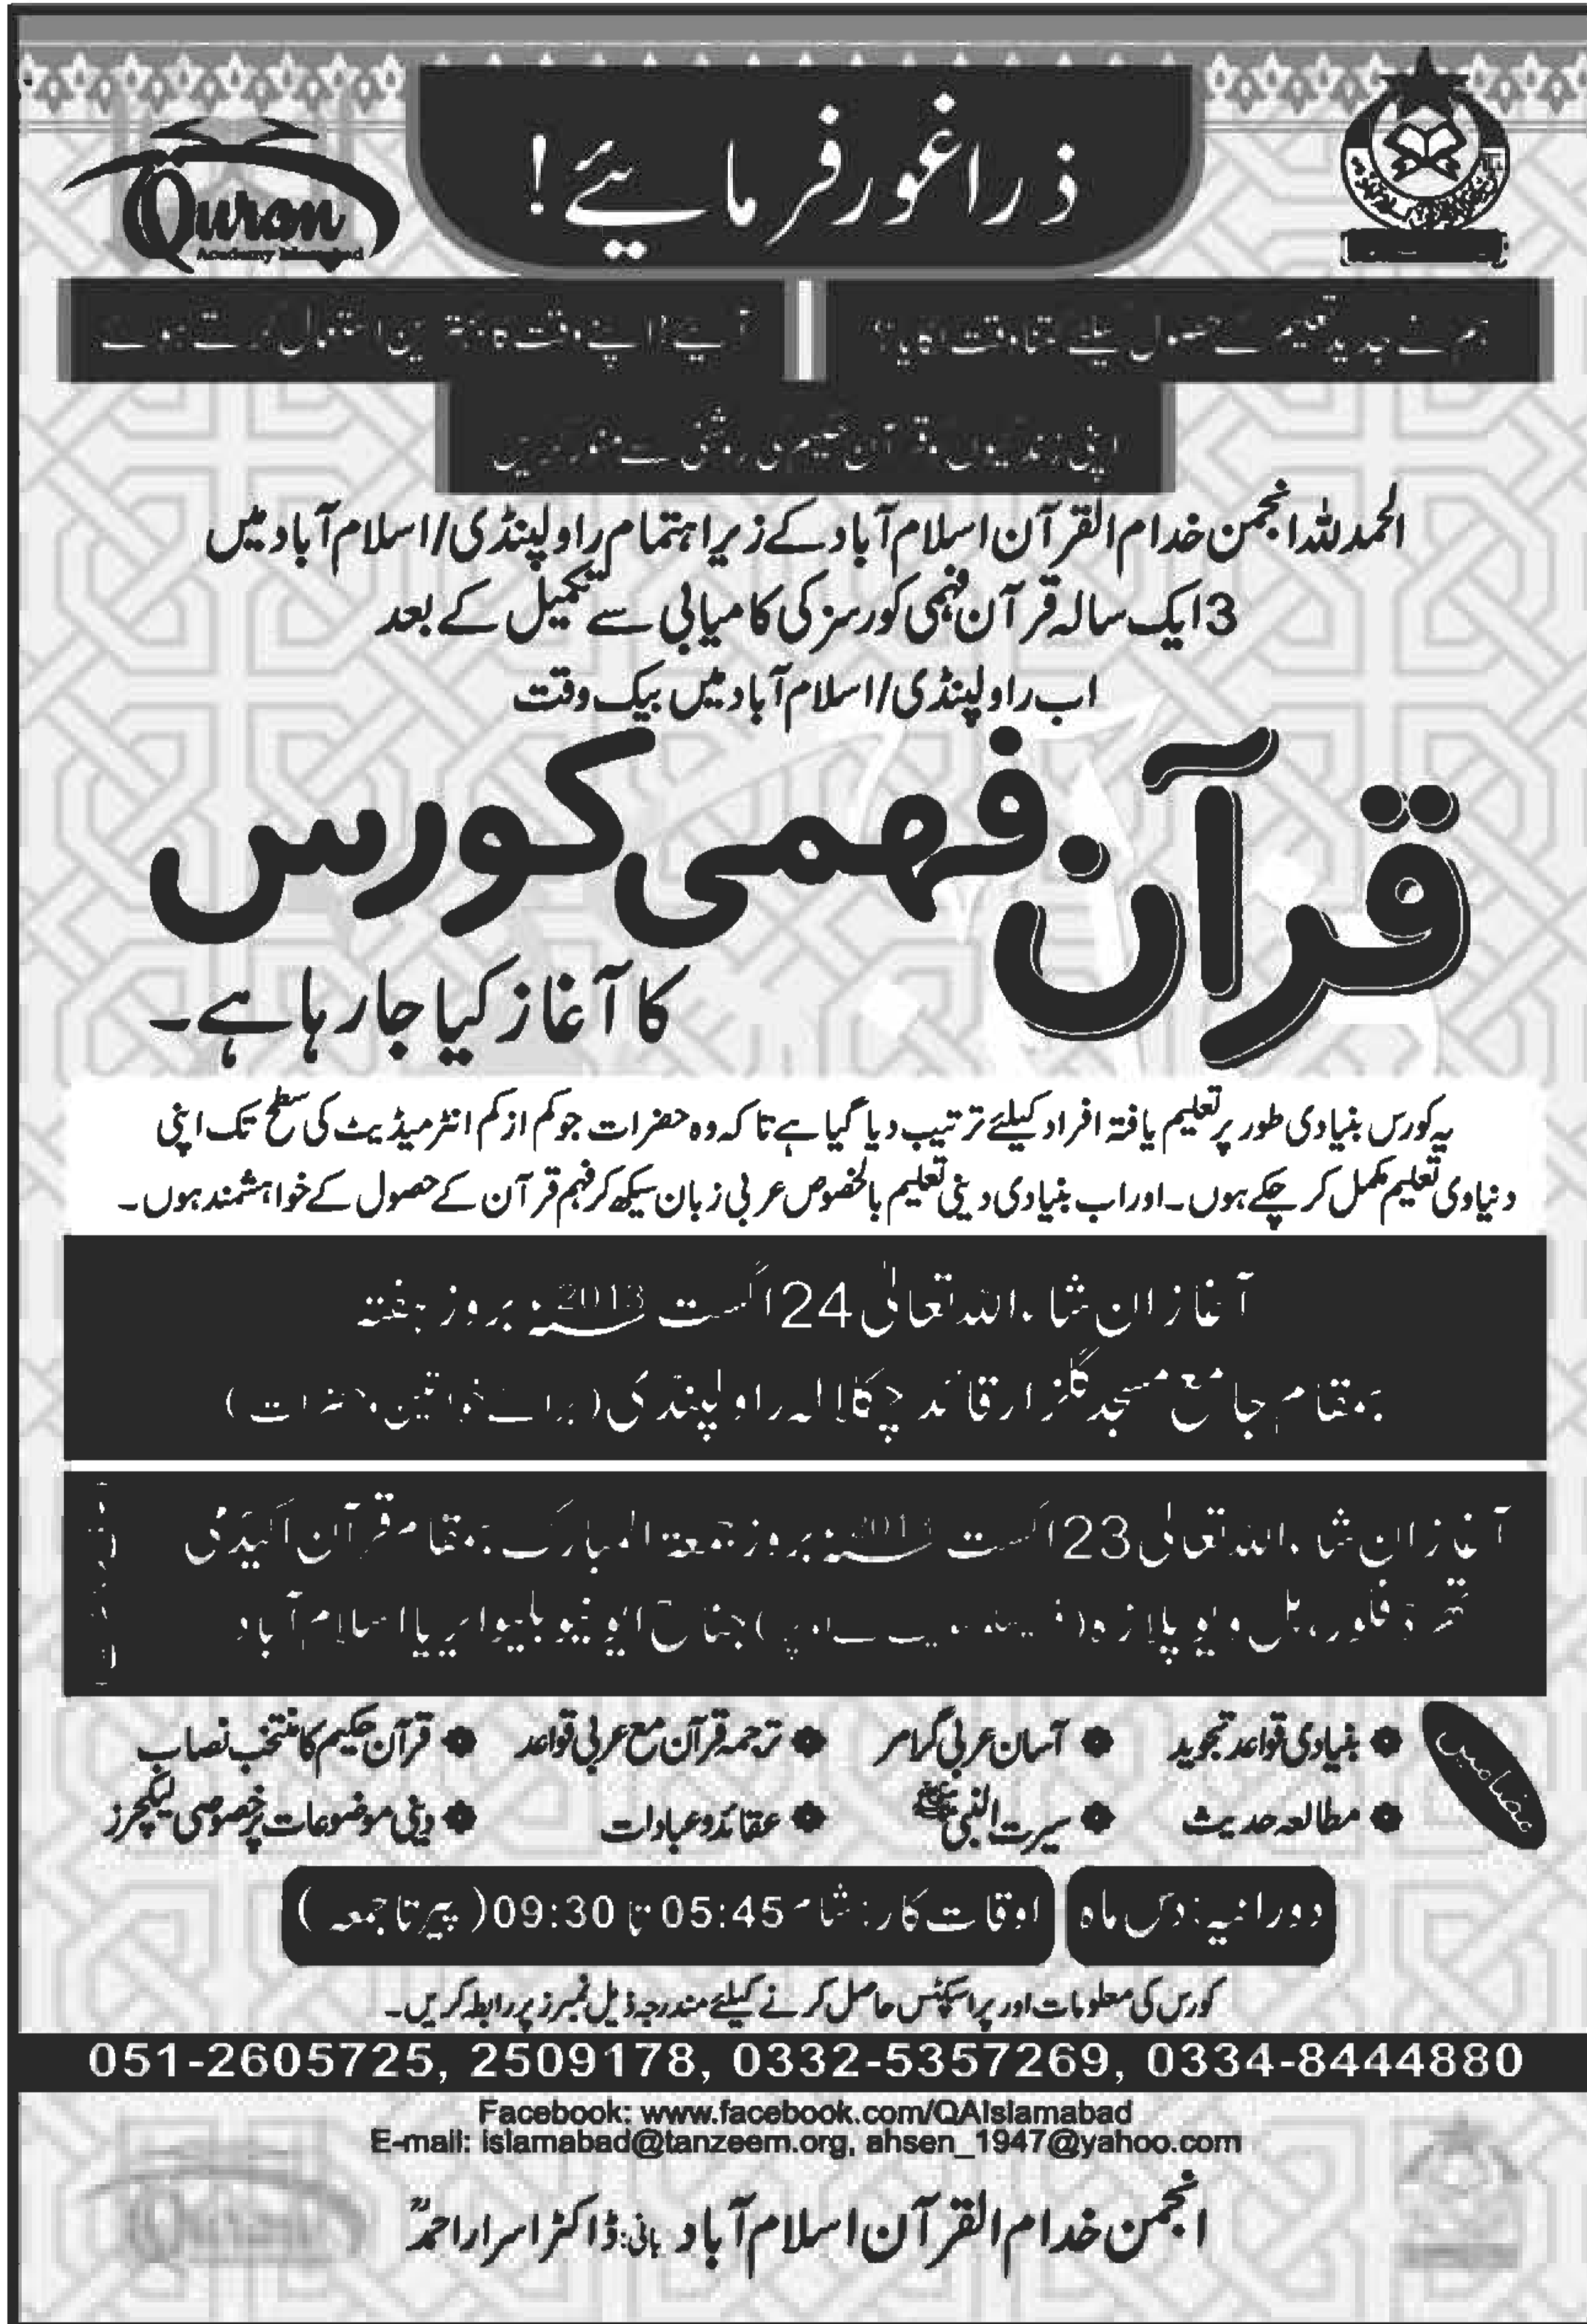 ذرا غور فرمایئے!
Quran
Academy Islamabad
ہم نے جدید تعلیم کے حصول کیلئے کتنا وقت لگایا؟
آیئے! اپنے وقت کا بہترین استعمال کرتے ہوئے
اپنی زندگیوں کو قرآن حکیم کی روشنی سے منور کریں
الحمدللہ انجمن خدام القرآن اسلام آباد کے زیر اہتمام راولپنڈی/اسلام آباد میں
3 ایک سالہ قرآن فہمی کورسز کی کامیابی سے تکمیل کے بعد
اب راولپنڈی/اسلام آباد میں بیک وقت
قرآن فہمی کورس
کا آغاز کیا جا رہا ہے۔
یہ کورس بنیادی طور پر تعلیم یافتہ افراد کیلئے ترتیب دیا گیا ہے تاکہ وہ حضرات جو کم از کم انٹرمیڈیٹ کی سطح تک اپنی
دنیاوی تعلیم مکمل کر چکے ہوں۔ اور اب بنیادی دینی تعلیم بالخصوص عربی زبان سیکھ کر فہم قرآن کے حصول کے خواہشمند ہوں۔
آغاز ان شاء اللہ تعالٰی 24 اگست 2013ء بروز ہفتہ
بمقام جامع مسجد گلزار قائد چکلالہ راولپنڈی (برائے خواتین و حضرات)
آغاز ان شاء اللہ تعالٰی 23 اگست 2013ء بروز جمعۃ المبارک بمقام قرآن اکیڈمی
تھرڈ فلور، ہل ویو پلازہ ( اوپر) جناح ایونیو بلیو ایریا اسلام آباد
مضامین
بنیادی قواعد تجوید
آسان عربی گرامر
ترجمہ قرآن مع عربی قواعد
قرآن حکیم کا منتخب نصاب
مطالعہ حدیث
سیرت النبی ﷺ
عقائد و عبادات
دینی موضوعات پر خصوصی لیکچرز
دورانیہ: دس ماہ
اوقات کار: شام 05:45 تا 09:30 (پیر تا جمعہ)
کورس کی معلومات اور پراسپکٹس حاصل کرنے کیلئے مندرجہ ذیل نمبرز پر رابطہ کریں۔
051-2605725, 2509178, 0332-5357269, 0334-8444880
Facebook: www.facebook.com/QAIslamabad
E-mail: islamabad@tanzeem.org, ahsen_1947@yahoo.com
انجمن خدام القرآن اسلام آباد بانی: ڈاکٹر اسرار احمدؒ